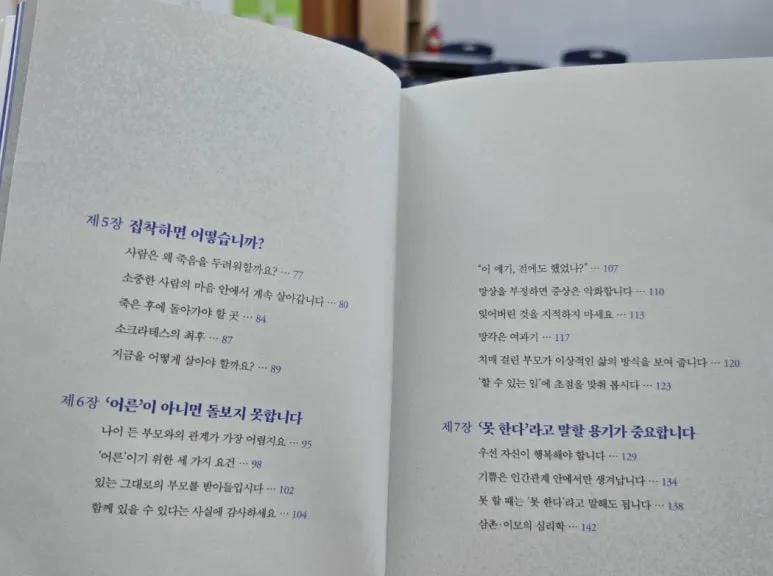 제5장 집착하면 어떻습니까?
사람은 왜 죽음을 두려워할까요? … 77
소중한 사람의 마음 안에서 계속 살아갑니다 … 80
죽은 후에 돌아가야 할 곳 … 84
소크라테스의 최후 … 87
지금을 어떻게 살아야 할까요? … 89
제6장 ‘어른’이 아니면 돌보지 못합니다
나이 든 부모와의 관계가 가장 어렵지요 … 95
‘어른’이기 위한 세 가지 요건 … 98
있는 그대로의 부모를 받아들입시다 … 102
함께 있을 수 있다는 사실에 감사하세요 … 104
“이 얘기, 전에도 했었나?” … 107
망상을 부정하면 증상은 악화합니다 … 110
잊어버린 것을 지적하지 마세요 … 113
망각은 여과기 … 117
치매 걸린 부모가 이상적인 삶의 방식을 보여 줍니다 … 120
‘할 수 있는 일’에 초점을 맞춰 봅시다 … 123
제7장 ‘못 한다’라고 말할 용기가 중요합니다
우선 자신이 행복해야 합니다 … 129
기쁨은 인간관계 안에서만 생겨납니다 … 134
못 할 때는 ‘못 한다’라고 말해도 됩니다 … 138
삼촌·이모의 심리학 … 142